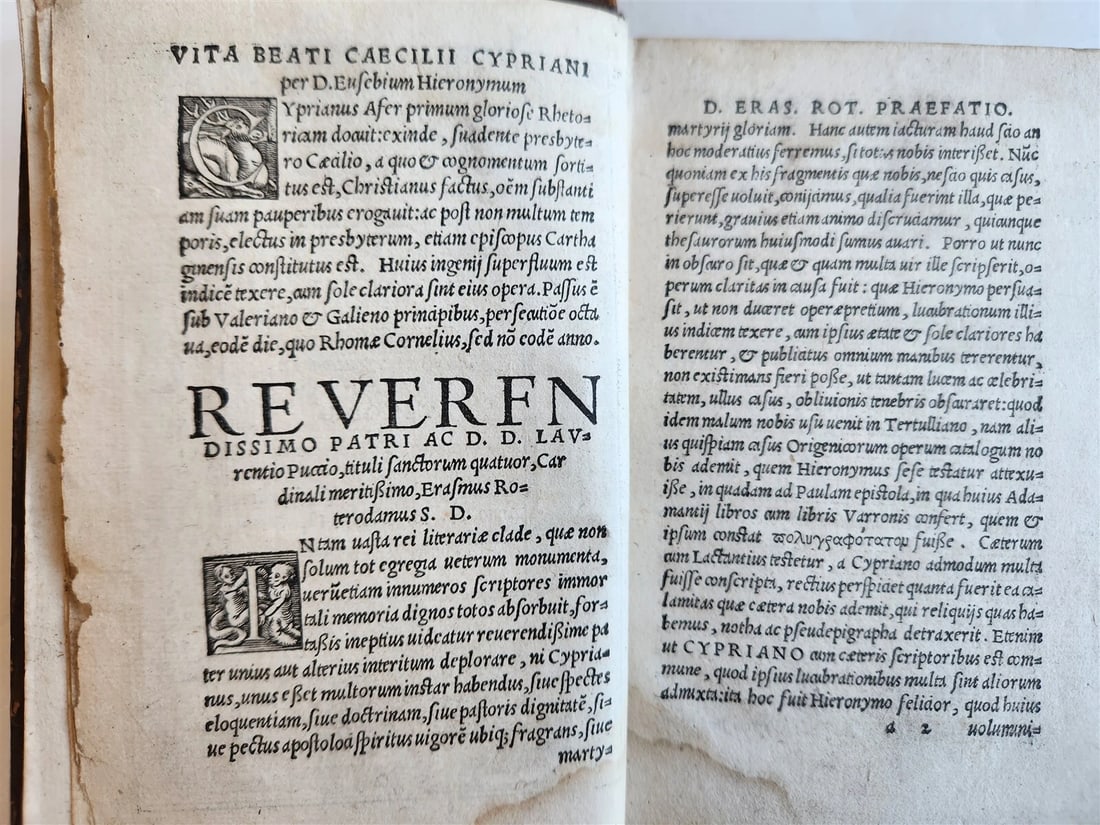 VITA BEATI CAECILII CYPRIANI
per D. Eusebium Hieronymum
CYprianus Afer primum gloriose Rheto-
ricam docuit: exinde, suadente presbyte-
ro Cæcilio, a quo & cognomentum sorti-
tus est, Christianus factus, oẽm substanti
am suam pauperibus erogauit: ac post non multum tem
poris, electus in presbyterum, etiam episcopus Cartha
ginensis constitutus est. Huius ingenij superfluum est
indicẽ texere, cum sole clariora sint eius opera. Passus ẽ
sub Valeriano & Galieno principibus, persecutiõe octa
ua, eodẽ die, quo Rhomæ Cornelius, sed nõ eodẽ anno.
REVEREN
DISSIMO PATRI AC D. D. LAV-
rentio Puccio, tituli sanctorum quatuor, Car
dinali meritißimo, Erasmus Ro-
terodamus S. D.
INtam uasta rei literariæ clade, quæ non
solum tot egregia ueterum monumenta,
uerũetiam innumeros scriptores immor
tali memoria dignos totos absorbuit, for-
taßis ineptius uideatur reuerendißime pa
ter unius aut alterius interitum deplorare, ni Cypria-
nus, unus eßet multorum instar habendus, siue spectes
eloquentiam, siue doctrinam, siue pastoris dignitatẽ, si-
ue pectus apostolici spiritus uigorẽ ubiq; fragrans, siue
marty-
D. ERAS. ROT. PRAEFATIO.
martyrij gloriam. Hanc autem iacturam haud scio an
hoc moderatius ferremus, si totus nobis interißet. Nũc
quoniam ex his fragmentis quæ nobis, nescio quis casus,
superesse uoluit, conijcimus, qualia fuerint illa, quæ pe-
rierunt, grauius etiam animo discruciamur, quicunque
thesaurorum huiusmodi sumus auari. Porro ut nunc
in obscuro sit, quæ & quam multa uir ille scripserit, o-
perum claritas in causa fuit: quæ Hieronymo persua-
sit, ut non duceret operæpretium, lucubrationum illi-
us indicem texere, cum ipsius ætate & sole clariores ha
berentur, & publicitus omnium manibus tererentur,
non existimans fieri poße, ut tantam lucem ac celebri-
tatem, ullus casus, obliuionis tenebris obscuraret: quod
idem malum nobis usu uenit in Tertulliano, nam ali-
us quispiam casus Origenicorum operum catalogum no
bis ademit, quem Hieronymus sese testatur attexu-
iße, in quadam ad Paulam epistola, in qua huius Ada-
mantij libros cum libris Varronis confert, quem &
ipsum constat πολυγραφότατον fuiße. Cæterum
cum Lactantius testetur, a Cypriano admodum multa
fuisse conscripta, rectius perspicict quanta fuerit ea ca-
lamitas quæ cætera nobis ademit, qui reliquijs quas ha-
bemus, notha ac pseudepigrapha detraxerit. Etenim
ut CYPRIANO cum cæteris scriptoribus est com-
mune, quod ipsius lucubrationibus multa sint aliorum
admixta: ita hoc fuit Hieronymo felicior, quod huius
a 2 uolumini-